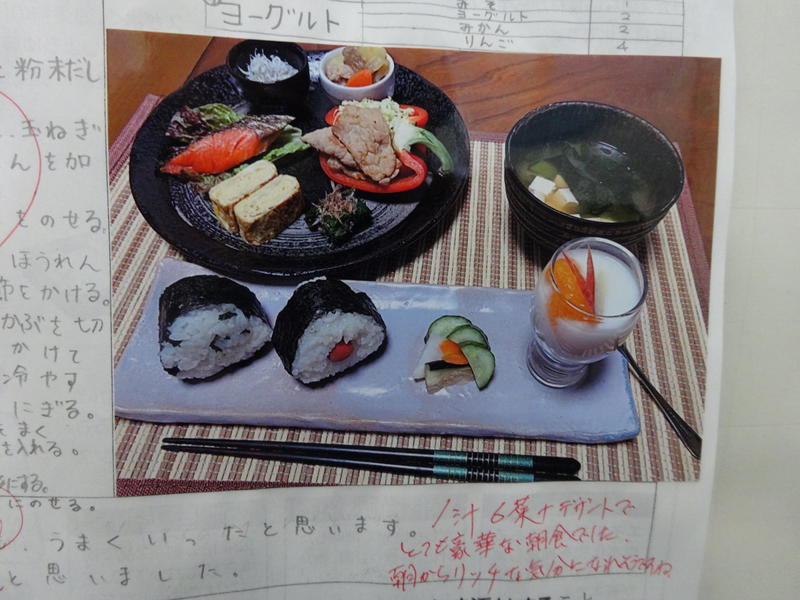 ヨーグルト
みそ 1
ヨーグルト 2
みかん 2
りんご 4
と粉末だし
玉ねぎ
んを加
をのせる。
ほうれん
節をかける。
かぶを切
かけて
冷やす
にぎる。
をまく
を入れる。
にする。
にのせる。
、うまくいったと思います。
と思いました。
1汁6菜+デザートで
とても豪華な朝食でした。
朝からリッチな気分になれそうですね